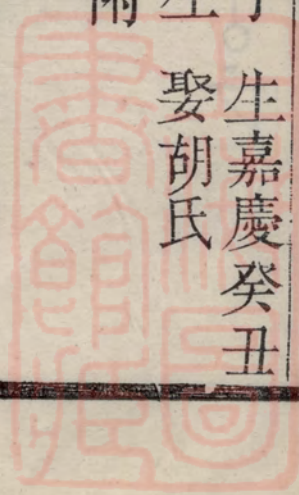 生嘉慶癸丑
娶胡氏